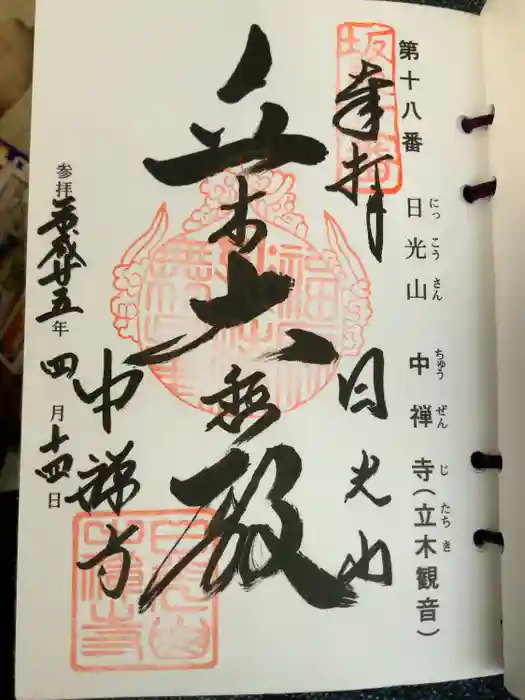 第十八番 日光山 中禅寺(立木観音)
にっこうさん ちゅうぜんじ たちき
奉拝
日光山
立木大悲殿
中禅寺
参拝 平成廿五年 四月十四日